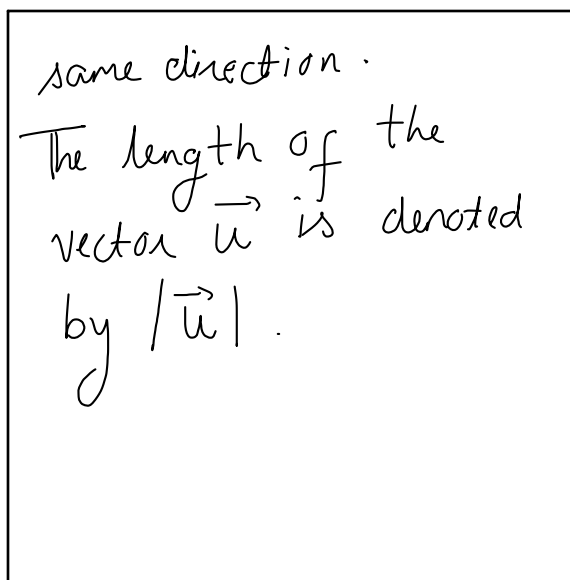 same direction.
The length of the
vector $\vec{u}$ is denoted
by $|\vec{u}|$.